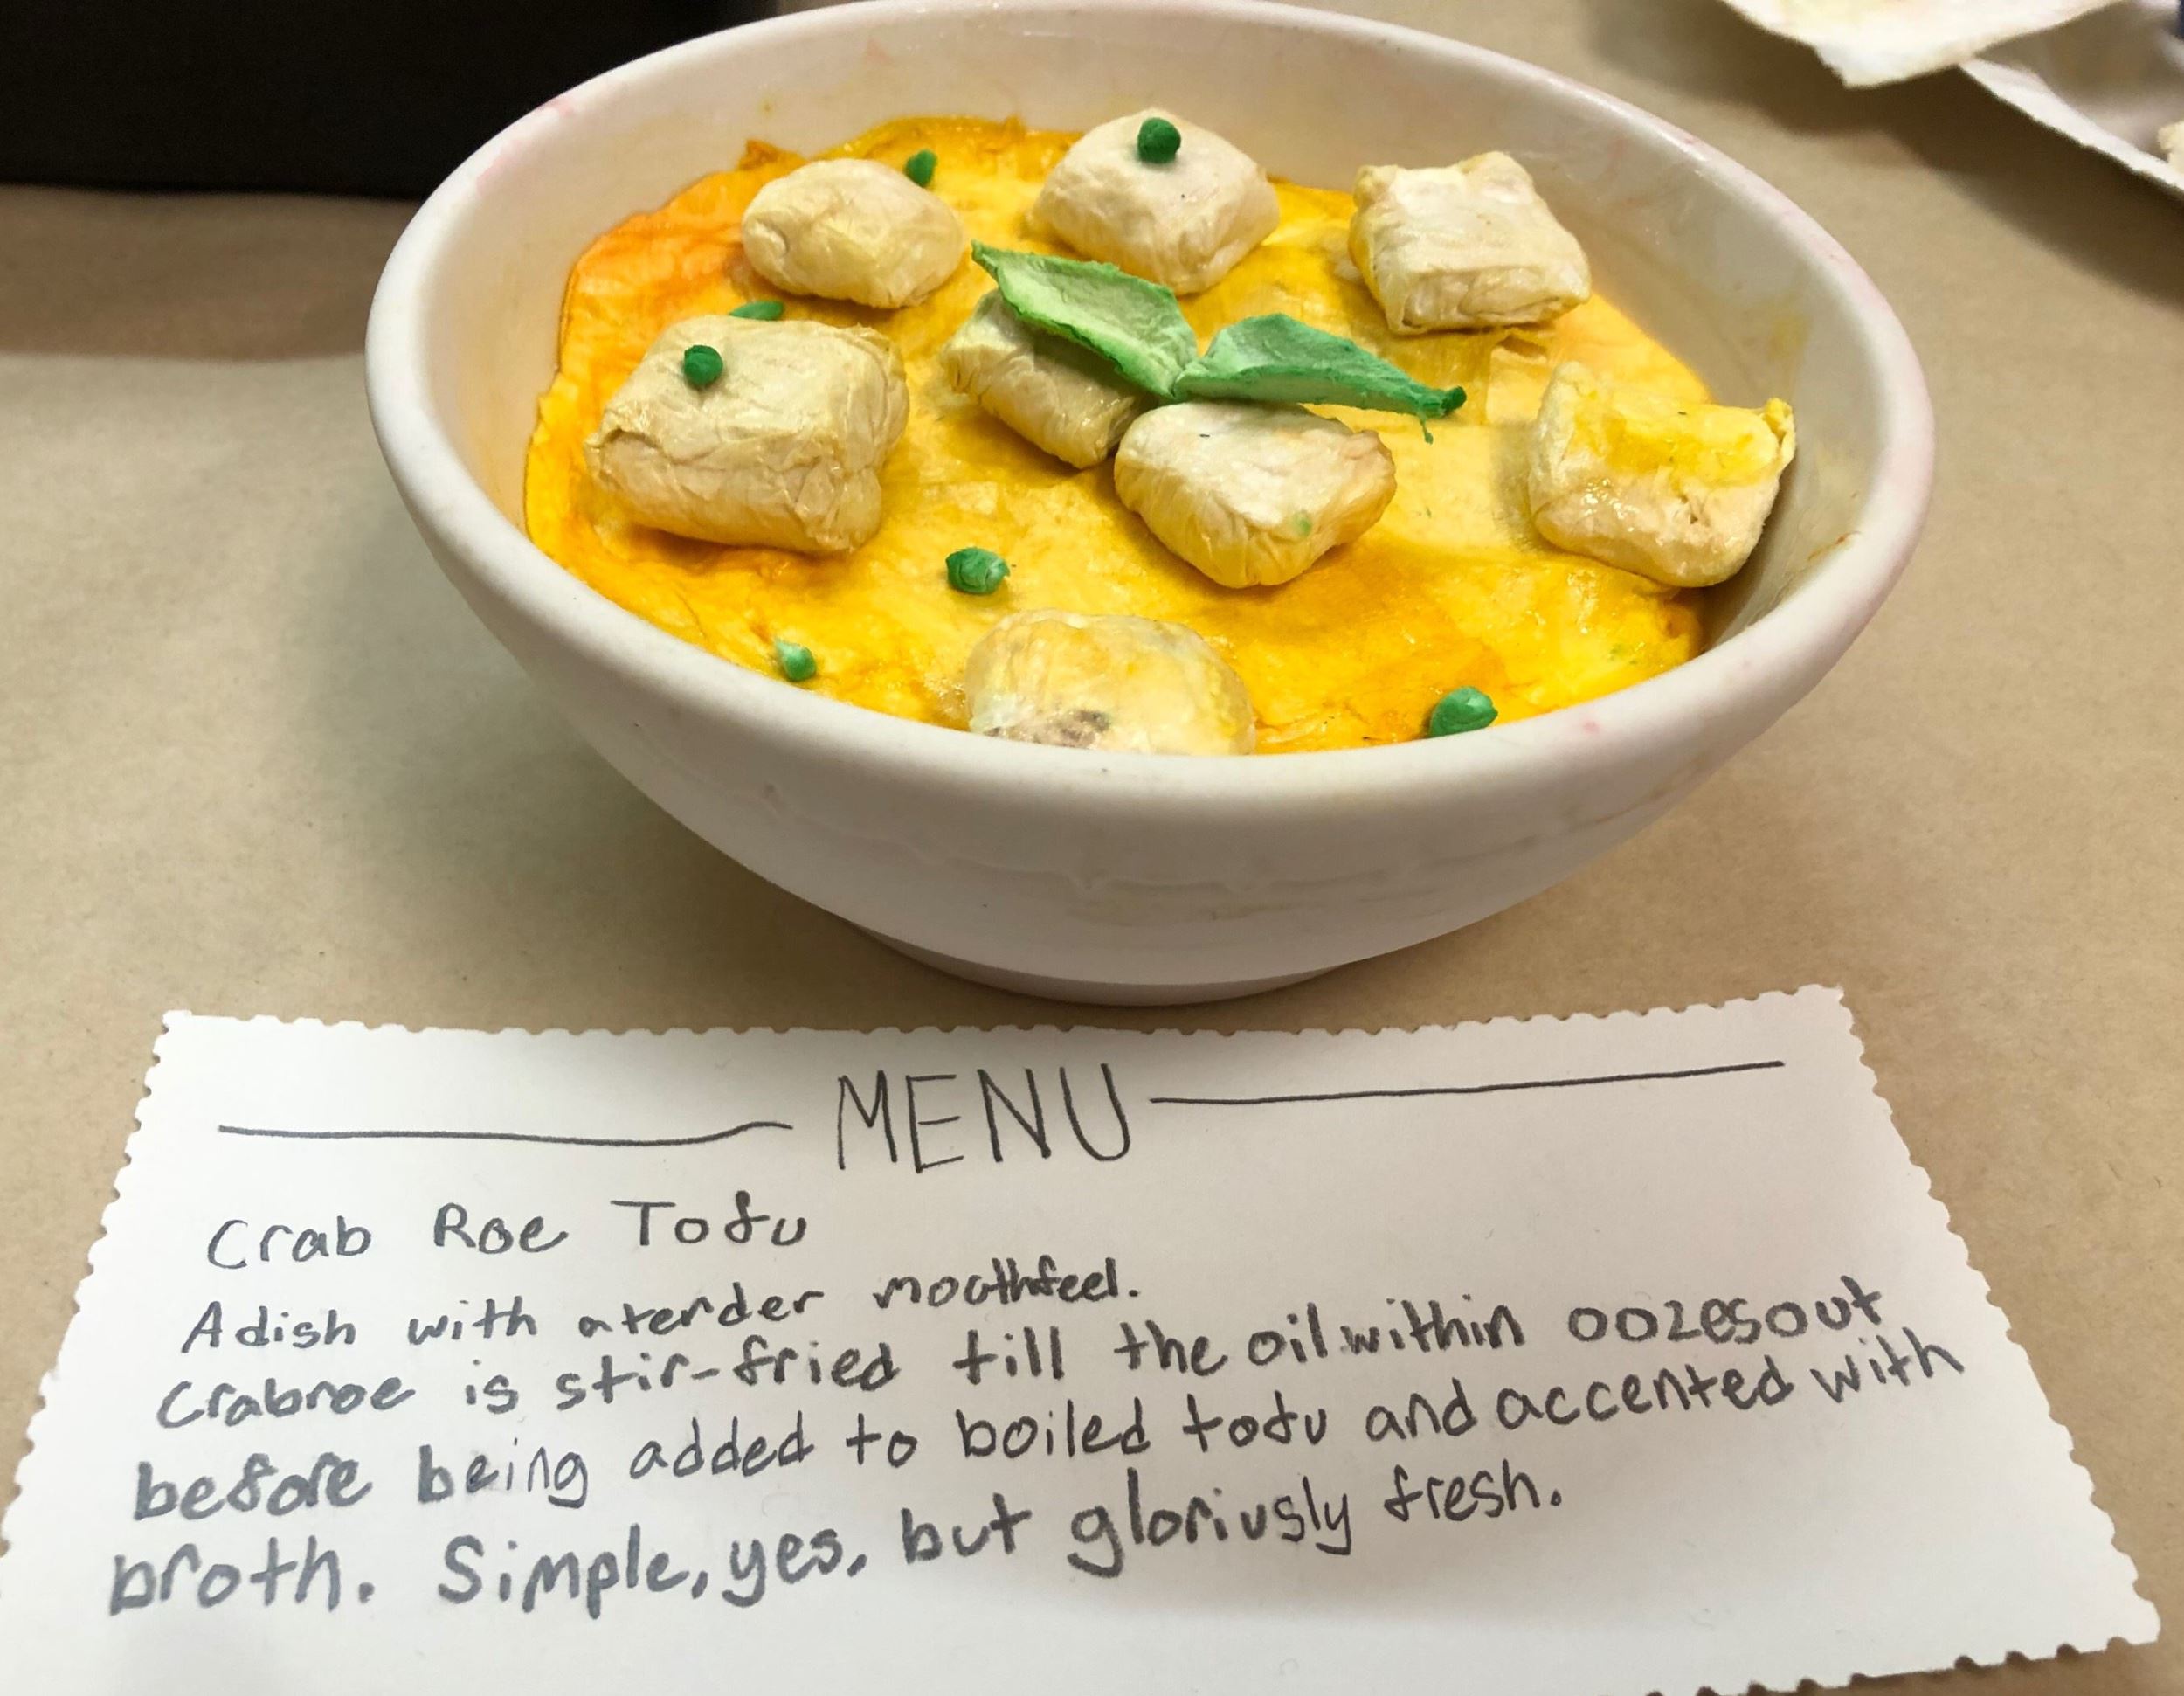 MENU
Crab Roe Tofu
A dish with a tender moathfeel.
Crabroe is stir-fried till the oil within oozes out
before being added to boiled tofu and accented with
broth. Simple, yes, but gloriusly fresh.